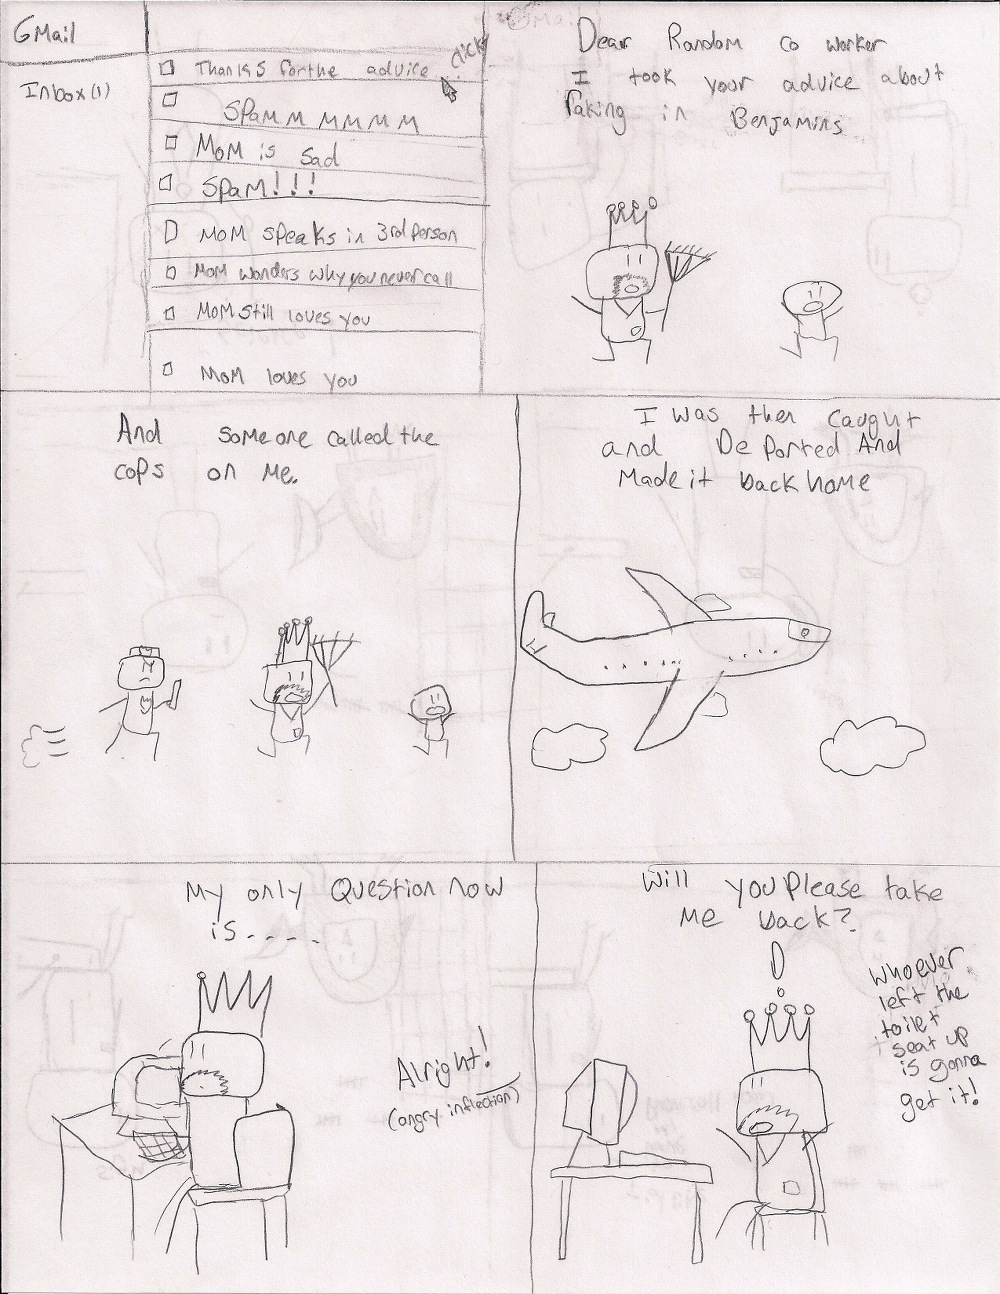 GMail
Inbox(1)
Thanks forthe advice
click
SpaMM MMMM
MoM is sad
SpaM!!!
MoM speaks in 3rd person
MoM wonders why you never call
MoM still loves you
MoM loves you
Dear Random co worker
I took your advice about
Raking in Benjamins
And someone called the
cops on Me.
I was then caught
and Deported And
Made it back home
My only Question now
is....
Alright!
(angry inflection)
Will you Please take
Me back?
Whoever
left the
toilet
seat up
is gonna
get it!